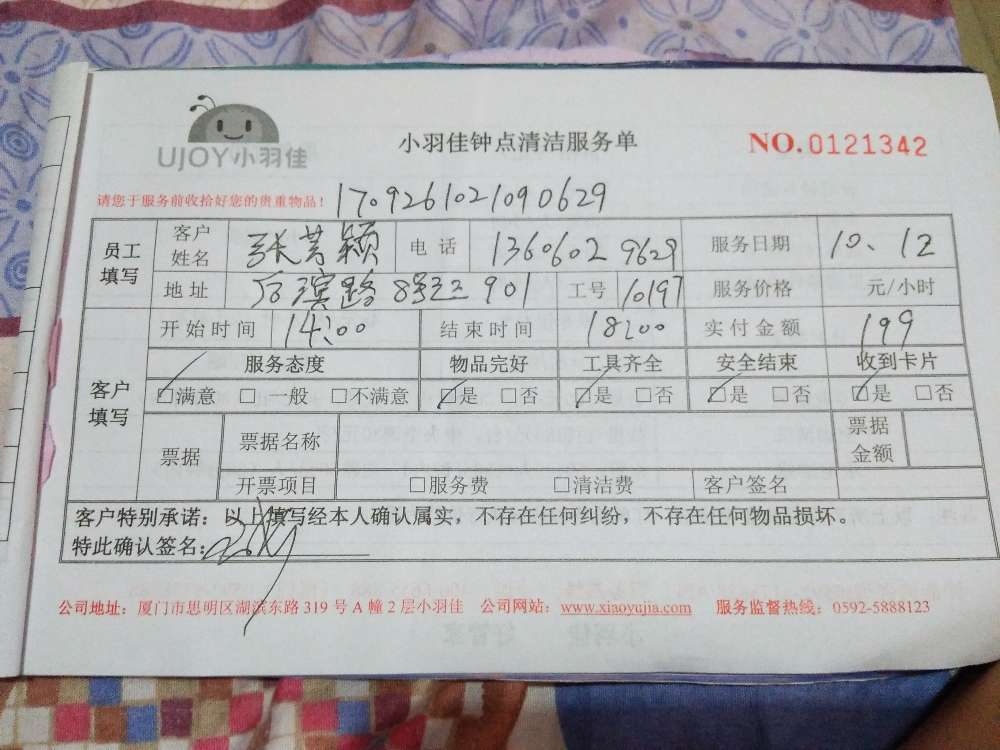 UJOY小羽佳
小羽佳钟点清洁服务单
NO.0121342
请您于服务前收拾好您的贵重物品!
170926102109 0629
员工填写 客户姓名 张芳颖 电话 1360602 9629 服务日期 10、12
地址 路 901 工号 10197 服务价格 元/小时
客户填写 开始时间 14:00 结束时间 18:00 实付金额 199
服务态度 物品完好 工具齐全 安全结束 收到卡片
☑满意 □ 一般 □不满意 ☑是 □否 ☑是 □否 ☑是 □否 ☑是 □否
票据 票据名称 票据金额
开票项目 □服务费 □清洁费 客户签名
客户特别承诺:以上填写经本人确认属实,不存在任何纠纷,不存在任何物品损坏。
特此确认签名:
公司地址:厦门市思明区湖滨东路 319 号 A 幢 2 层小羽佳 公司网站:www.xiaoyujia.com 服务监督热线:0592-5888123